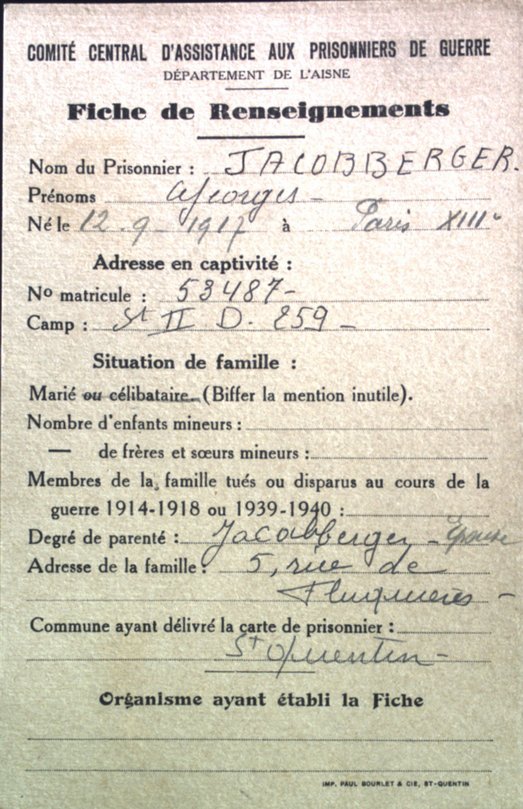 COMITÉ CENTRAL D'ASSISTANCE AUX PRISONNIERS DE GUERRE
DÉPARTEMENT DE L'AISNE
Fiche de Renseignements
Nom du Prisonnier : JACOBBERGER.
Prénoms Georges -
Né le 12 - 9 - 1917 à Paris XIIIe
Adresse en captivité :
No matricule : 53487 -
Camp : St II D. 259 -
Situation de famille :
Marié ou célibataire. (Biffer la mention inutile).
Nombre d'enfants mineurs :
— de frères et sœurs mineurs :
Membres de la famille tués ou disparus au cours de la
guerre 1914-1918 ou 1939-1940 :
Degré de parenté : Jacobberger - Epouse
Adresse de la famille : 5, rue de
Fluquières -
Commune ayant délivré la carte de prisonnier :
St Quentin -
Organisme ayant établi la Fiche
IMP. PAUL BOURLET & CIE, ST-QUENTIN